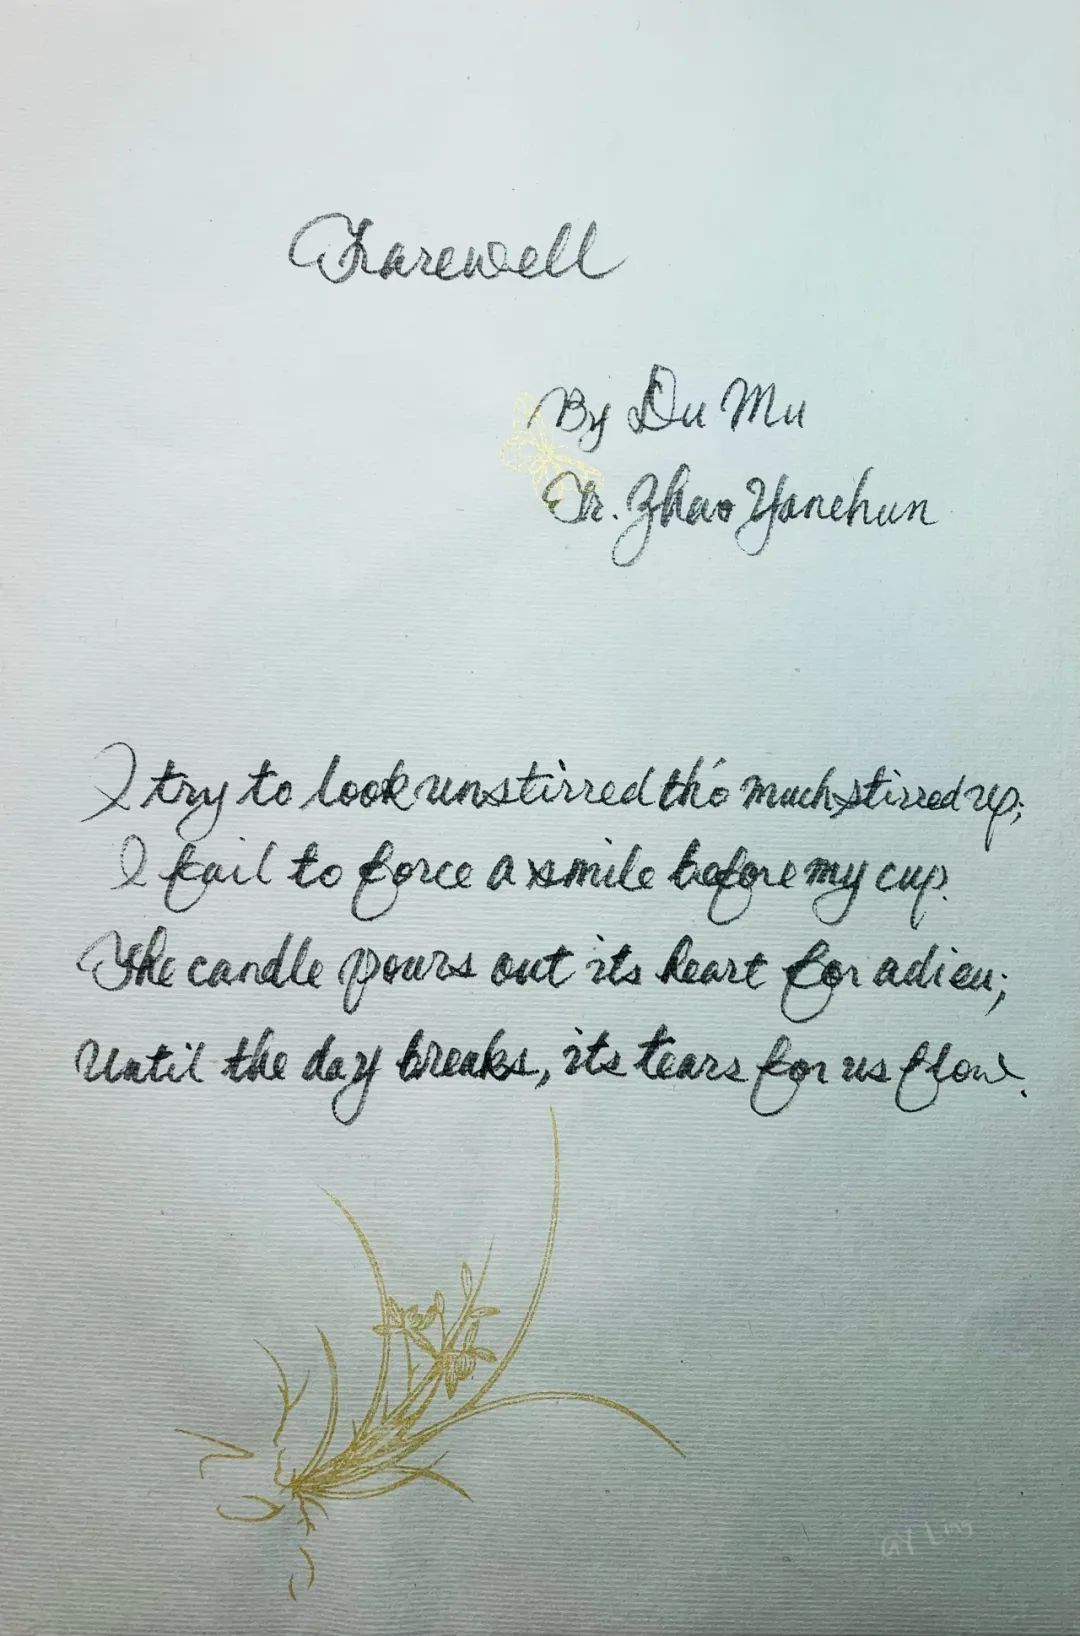 Farewell
By Du Mu
Tr. Zhao Yanchun
I try to look unstirred tho' much stirred up;
I fail to force a smile before my cup.
The candle pours out its heart for adieu;
Until the day breaks, its tears for us flow.
GY Ling